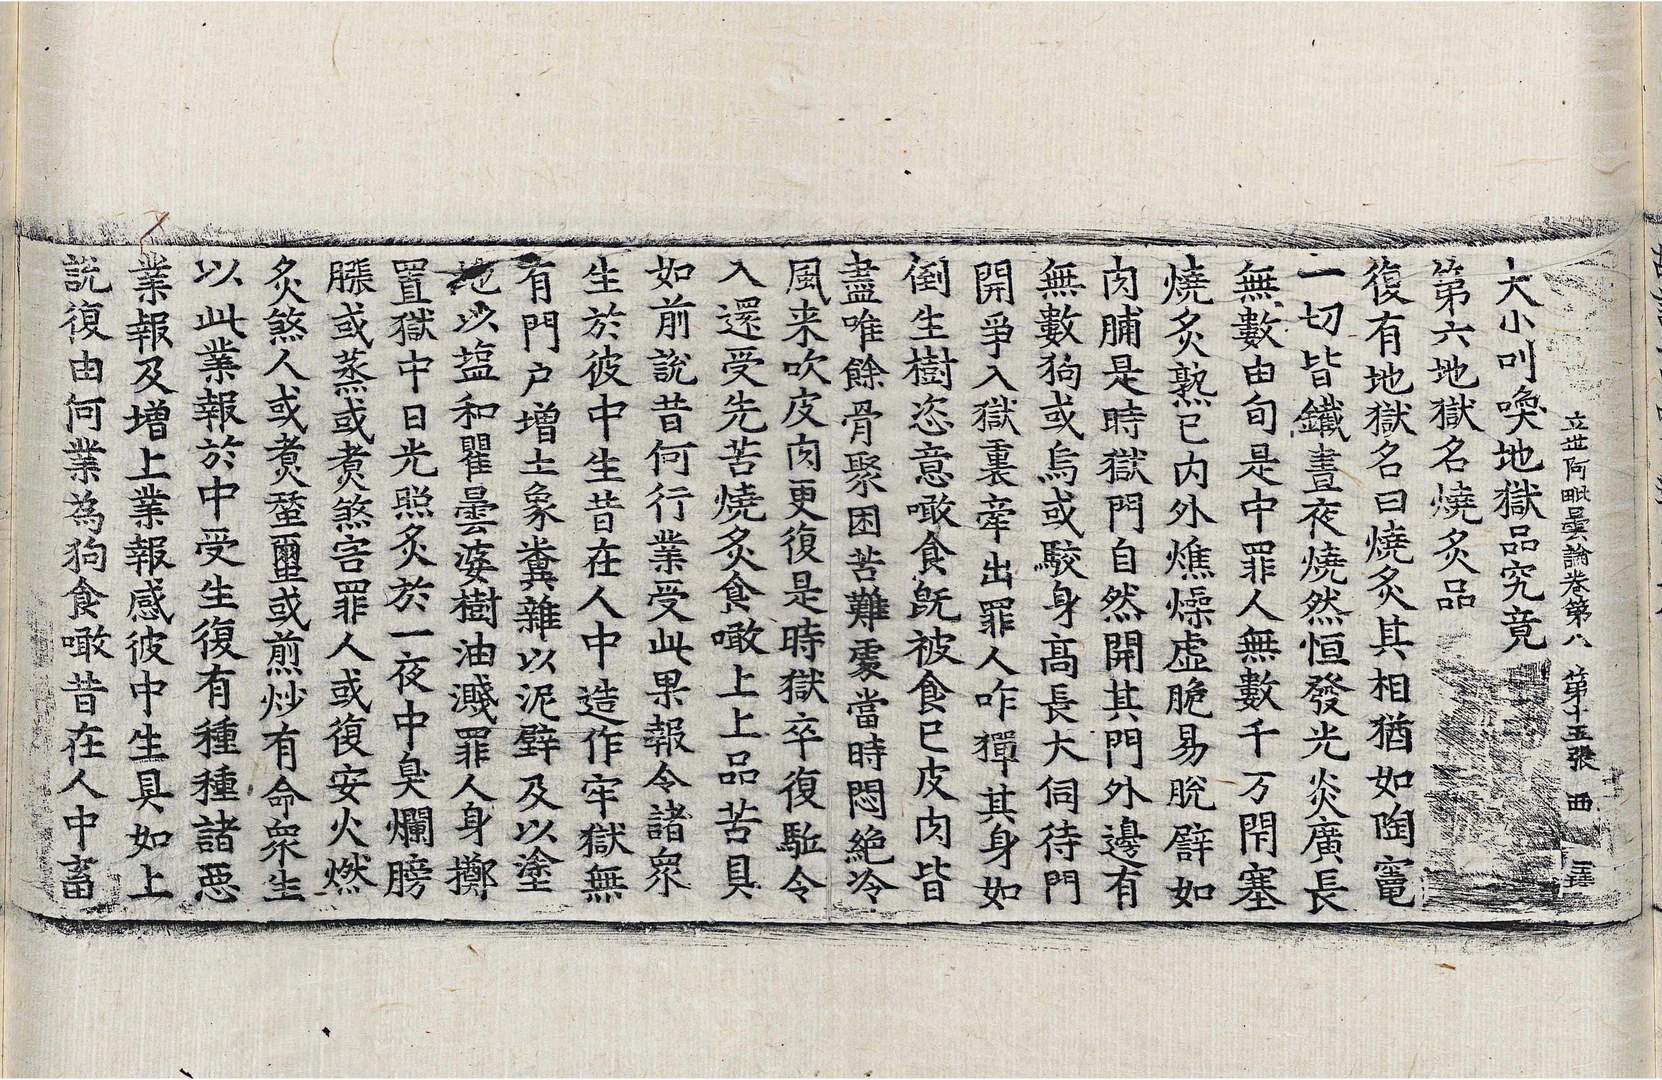 立世阿毗曇論卷第八 第十五張 西
大小叫喚地獄品究竟
第六地獄名燒炙品
復有地獄名曰燒炙其相猶如陶竈
一切皆鐵晝夜燒然恒發光炎廣長
無數由旬是中罪人無數千万閇塞
燒炙熟已内外燋燥虛脆易脫譬如
肉脯是時獄門自然開其門外邊有
無數狗或烏或駮身高長大伺待門
開爭入獄裏牽出罪人咋㹌其身如
倒生樹恣意噉食旣被食已皮肉皆
盡唯餘骨聚困苦難處當時悶絶冷
風来吹皮肉更復是時獄卒復駈令
入還受先苦燒炙食噉上上品苦具
如前說昔何行業受此果報令諸衆
生於彼中生昔在人中造作牢獄無
有門户增土象糞雜以泥壁及以塗
地以塩和瞿曇婆樹油濺罪人身擲
置獄中日光照炙於一夜中臭爛膀
脹或蒸或煑煞害罪人或復安火燃
炙煞人或煑蠒或煎炒有命衆生
以此業報於中受生復有種種諸惡
業報及増上業報感彼中生具如上
說復由何業為狗食噉昔在人中畜